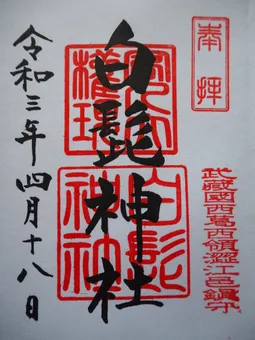 奉拝
武蔵國西葛西領澀江邑鎮守
白髭神社
白髭神社
令和三年四月十八日